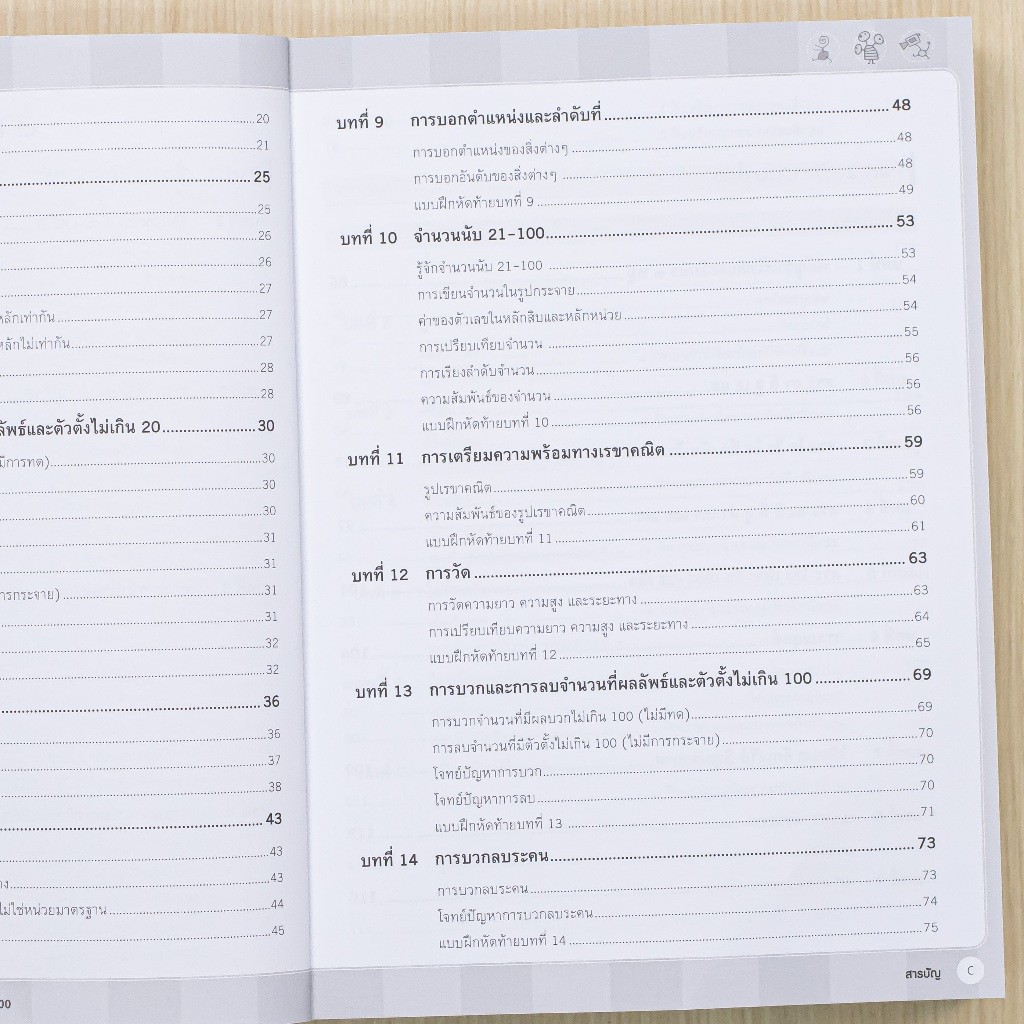 20
21
25
25
26
26
27
หลักเท่ากัน 27
หลักไม่เท่ากัน 27
28
28
ลัพธ์และตัวตั้งไม่เกิน 20 30
มีการทด) 30
30
30
31
31
ารกระจาย) 31
31
32
32
36
36
37
38
43
43
าง 43
ไม่ใช่หน่วยมาตรฐาน 44
45
00
บทที่ 9 การบอกตำแหน่งและลำดับที่ 48
การบอกตำแหน่งของสิ่งต่างๆ 48
การบอกอันดับของสิ่งต่างๆ 48
แบบฝึกหัดท้ายบทที่ 9 49
บทที่ 10 จำนวนนับ 21-100 53
รู้จักจำนวนนับ 21-100 53
การเขียนจำนวนในรูปกระจาย 54
ค่าของตัวเลขในหลักสิบและหลักหน่วย 54
การเปรียบเทียบจำนวน 55
การเรียงลำดับจำนวน 56
ความสัมพันธ์ของจำนวน 56
แบบฝึกหัดท้ายบทที่ 10 56
บทที่ 11 การเตรียมความพร้อมทางเรขาคณิต 59
รูปเรขาคณิต 59
ความสัมพันธ์ของรูปเรขาคณิต 60
แบบฝึกหัดท้ายบทที่ 11 61
บทที่ 12 การวัด 63
การวัดความยาว ความสูง และระยะทาง 63
การเปรียบเทียบความยาว ความสูง และระยะทาง 64
แบบฝึกหัดท้ายบทที่ 12 65
บทที่ 13 การบวกและการลบจำนวนที่ผลลัพธ์และตัวตั้งไม่เกิน 100 69
การบวกจำนวนที่มีผลบวกไม่เกิน 100 (ไม่มีทด) 69
การลบจำนวนที่มีตัวตั้งไม่เกิน 100 (ไม่มีการกระจาย) 70
โจทย์ปัญหาการบวก 70
โจทย์ปัญหาการลบ 70
แบบฝึกหัดท้ายบทที่ 13 71
บทที่ 14 การบวกลบระคน 73
การบวกลบระคน 73
โจทย์ปัญหาการบวกลบระคน 74
แบบฝึกหัดท้ายบทที่ 14 75
สารบัญ C